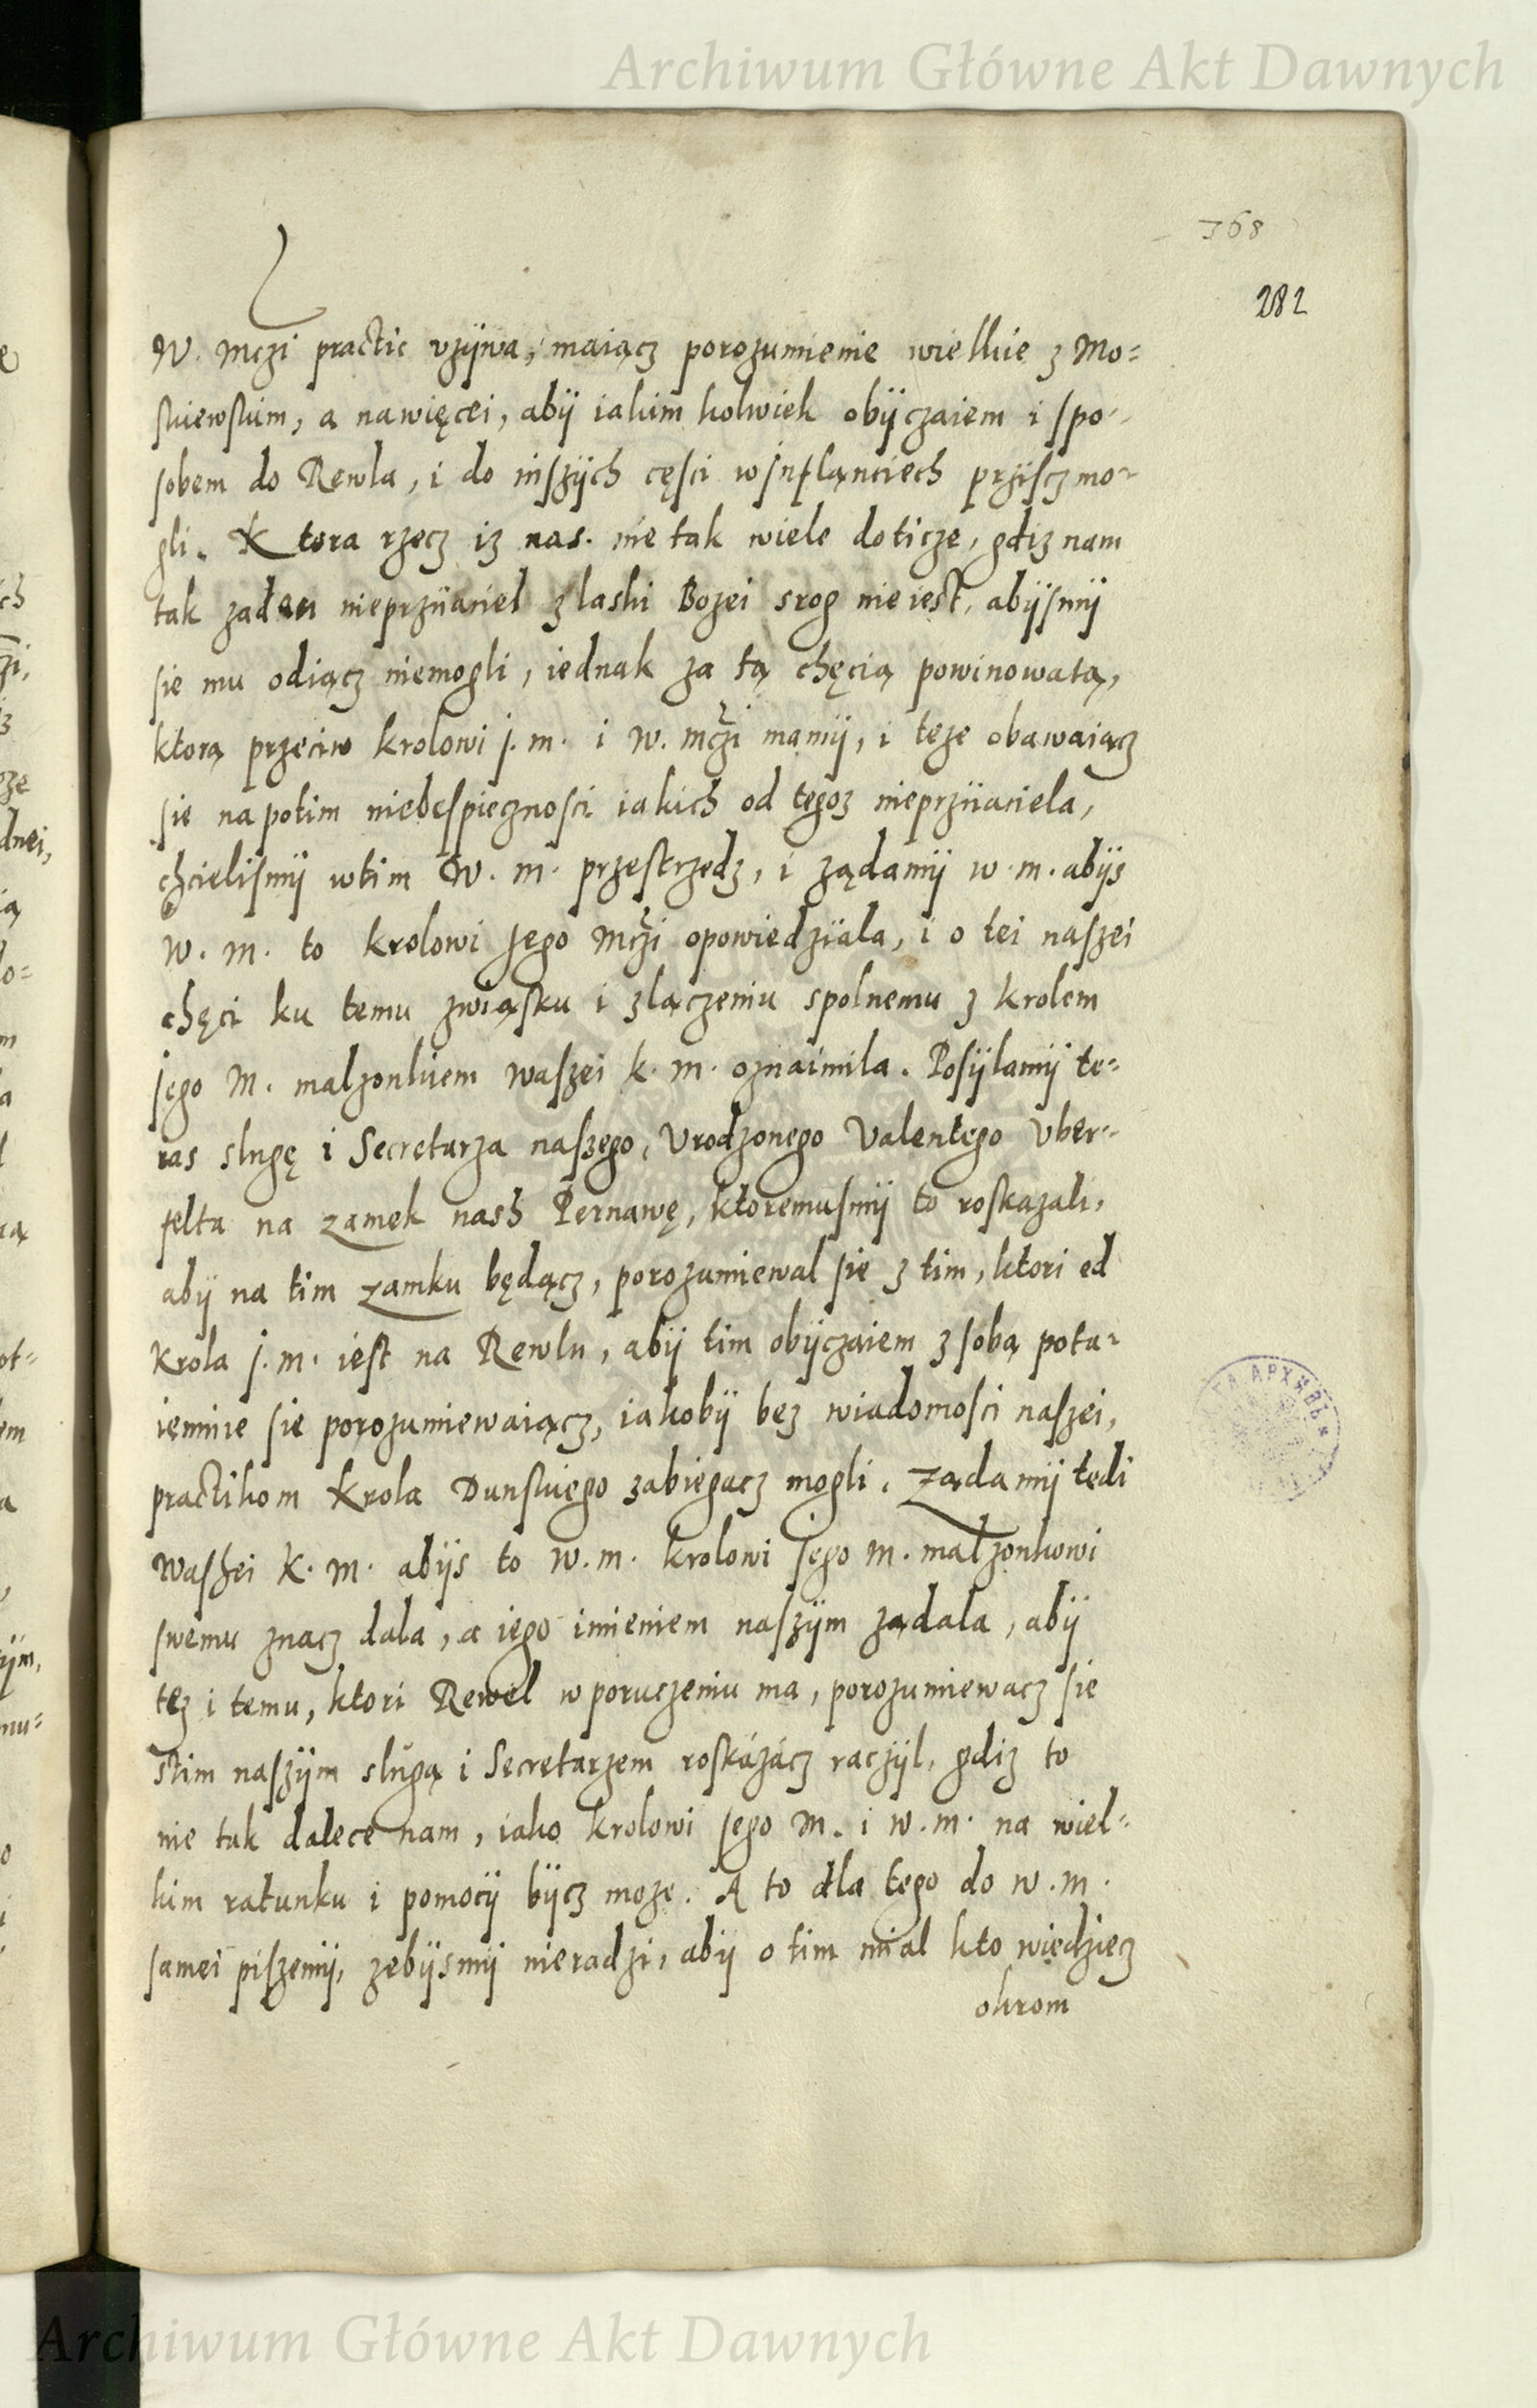 Archiwum Główne Akt Dawnych
368
282
W. Mczi practic vzÿwa, maiącz porozumienie wielkie z Mo=
skiewskim, a nawięcei, abÿ iakim kolwiek obÿczaiem i spo-
sobem do Rewla, i do inszÿch cęsci w Inflanciech prziscz mo-
gli. Ktora rzecz iz nas. nie tak wiele doticze, gdiz nam
tak zaden nieprziiaciel z laski Bozei srog nie iest, abÿsmÿ
sie mu odiącz niemogli, iednak za tą chęcią powinowatą,
ktorą przeciw krolowi j. m. i W. mczi mamÿ, i teze obawaiącz
sie napotim niebespiecznosci iakich od tegoz nieprziiaciela,
chcielismÿ wtim W. m. przestrzedz, i ządamÿ w. m. abÿs
W. m. to krolowi Jego Mczi opowiedziala, i o tei naszei
chęci ku temu zwiąsku i zlączeniu spolnemu z krolem
Jego M. malzonkiem waszei k. m. oznaimila. Posÿlamÿ te=
ras slugę i Secretarza naszego, Vrodzonego Valentego Vber=
felta na zamek nash Pernawę, ktoremusmÿ to roskazali,
abÿ na tim zamku będącz, porozumiewal sie z tim, ktori od
Krola j. m. iest na Rewlu, abÿ tim obÿczaiem z sobą pota-
iemnie sie porozumiewaiącz, iakobÿ bez wiadomosci naszei,
practikom Krola Dunskiego zabiegacz mogli. Ządamÿ tedi
Washei K. M. abÿs to W. m. krolowi Jego M. malzonkowi
swemu znacz dala, a iego imieniem naszÿm ządala, abÿ
tez i temu, ktori Rewel w poruczeniu ma, porozumiewacz sie
stim naszÿm slugą i Secretarzem roskázácz raczÿl, gdiz to
nie tak dalece nam, iako krolowi Jego M. i w. m. na wiel=
kim ratunku i pomocÿ bÿcz moze. A to dla tego do w. m.
samei piszemÿ, zebÿsmÿ nieradzi, abÿ o tim mial kto wiedziecz
okrom
АРХИВЪ
Archiwum Główne Akt Dawnych